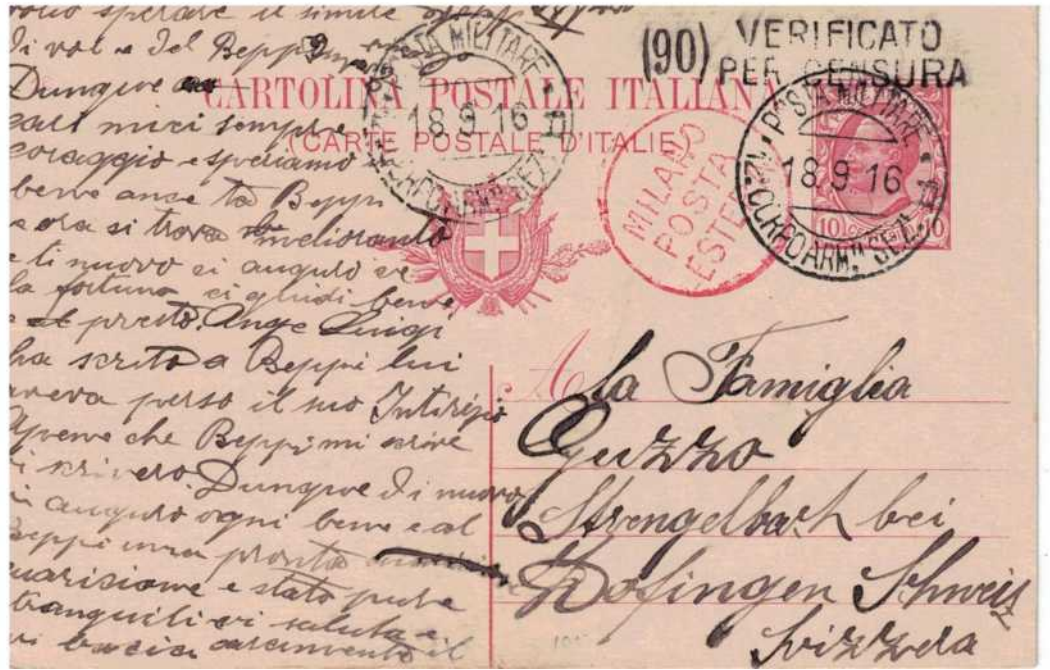 (90) VERIFICATO
PER CENSURA
CARTOLINA POSTALE ITALIANA
(CARTE POSTALE D'ITALIE)
POSTA MILITARE
18.9.16
MILANO
POSTA
ESTERA
POSTA MILITARE
18.9.16
12° CORPO ARMTA SEZ. A
10
A la Famiglia
Guzzo
Strengelbach bei
Zofingen Schweiz
Svizzera
sperare il simile
di voi e del Beppi
Dungue
miei sempre
coraggio e speriamo
bene anse Beppi
ora si trova
ti nuovo vi auguro
la fortuna ci ghidi bene
presto. Ange Luigi
ha scrito a Beppi lui
aveva perso il suo
Apene che Beppi mi scrive
scrivero. Dungue di nuovo
auguro ogni bene e al
Beppi una pronta
guarisione e stato pure
tranquili vi saluta e
vi bacia caramente il